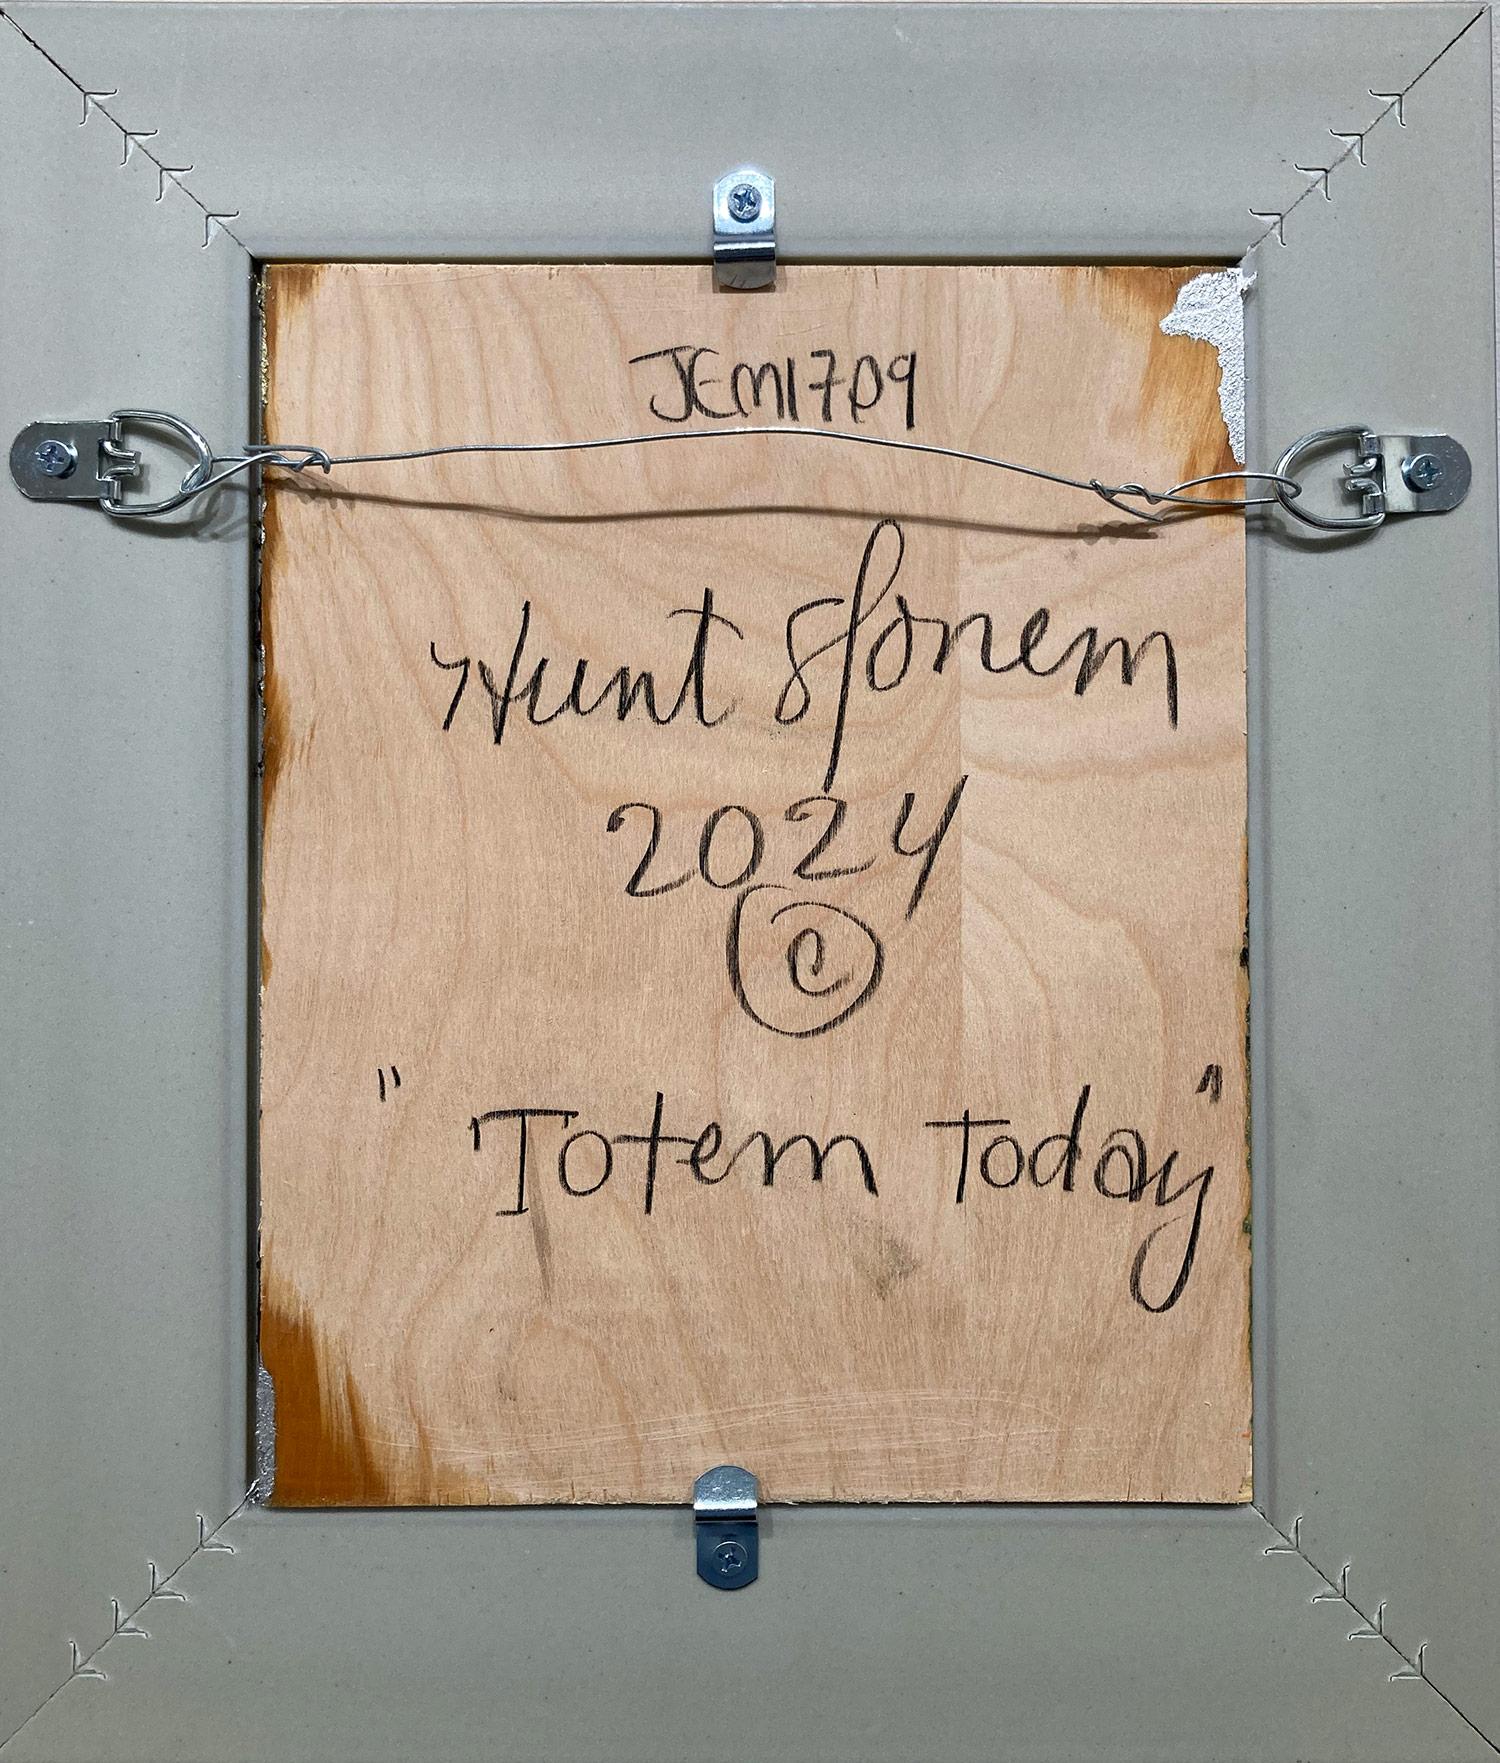 JEM1709
Hunt Slonem
2024
©
"Totem Today"